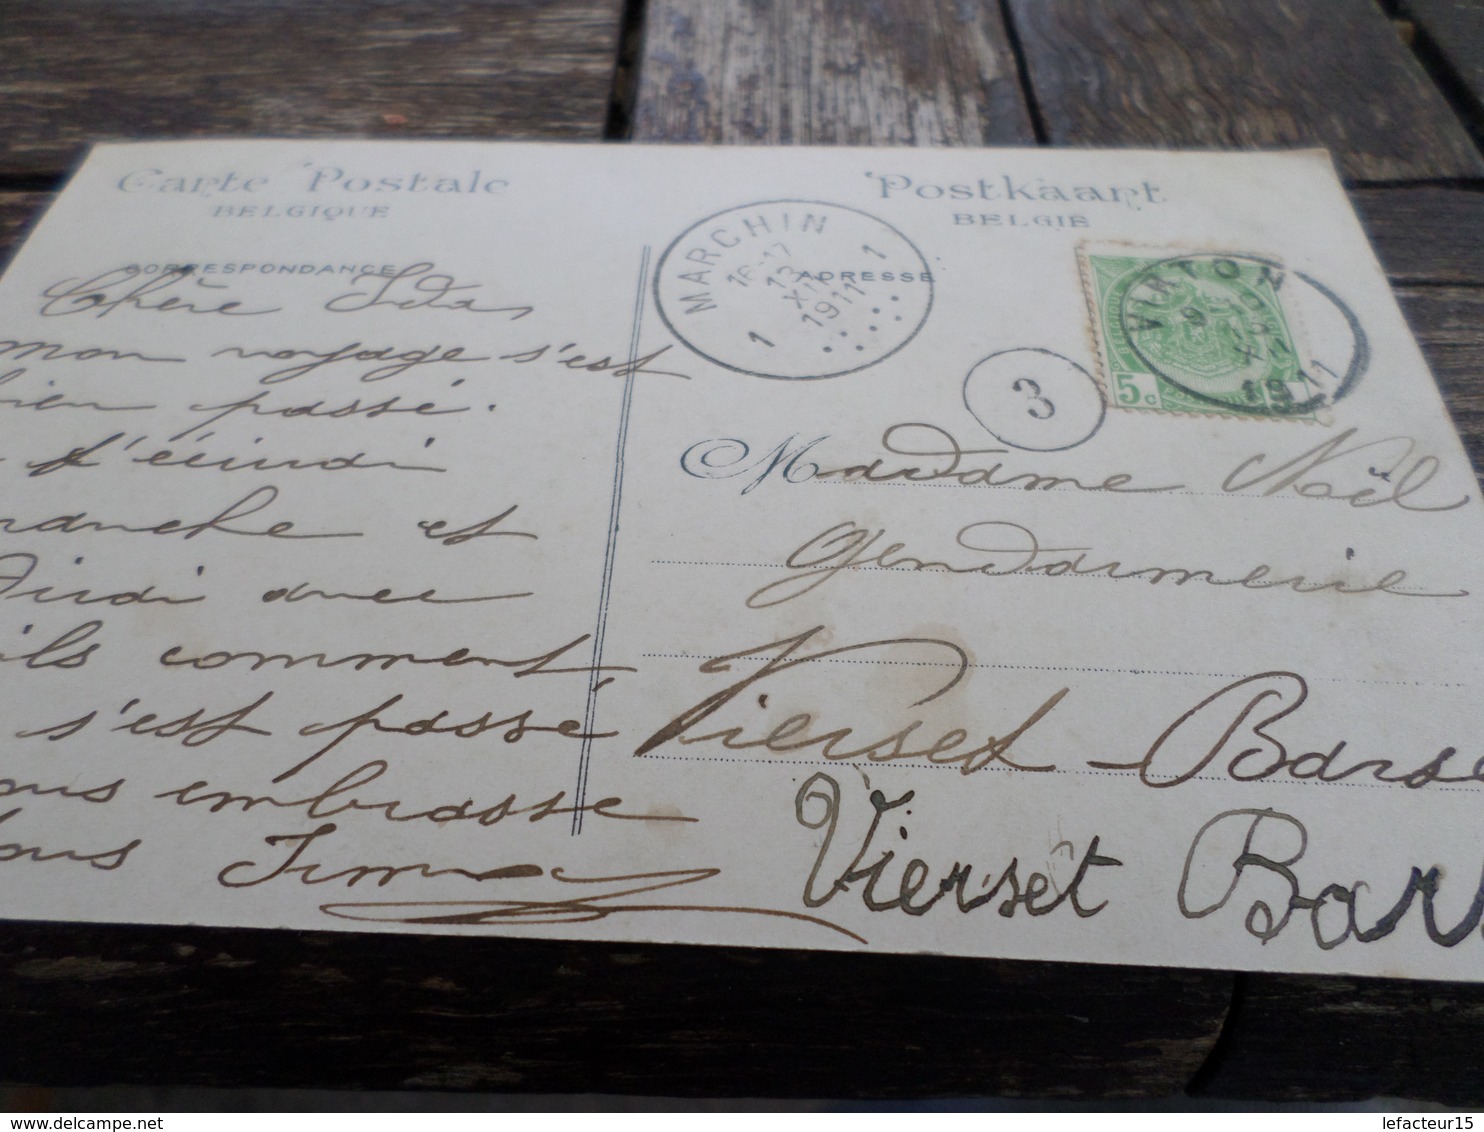 Carte Postale
BELGIQUE
Postkaart
BELGIE
CORRESPONDANCE
ADRESSE
MARCHIN
1
16-17
13
XII
1911
1
VIRTON
9
1911
3
5c
Chère Ida,
mon voyage s'est
bien passé.
J'écirai
manche et
dirai avec
ils comment,
s'est passé
ous embrasse
ous Irma
Madame Noël
Gendarmerie
Vierset-Barse
Vierset Bar
lefacteur15